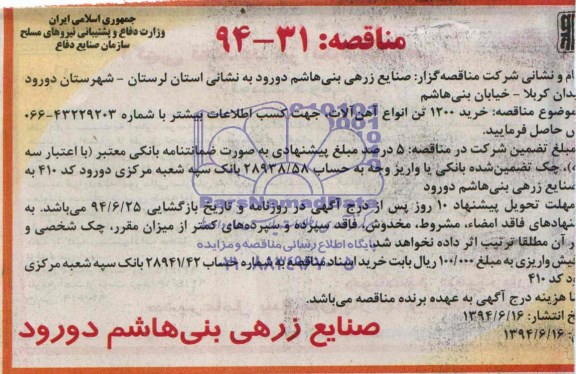 جمهوری اسلامی ایران
وزارت دفاع و پشتیبانی نیروهای مسلح
سازمان صنایع دفاع
مناقصه: ۳۱-۹۴
نام و نشانی شرکت مناقصه‌گزار: صنایع زرهی بنی‌هاشم دورود به نشانی استان لرستان - شهرستان دورود
میدان کربلا - خیابان بنی‌هاشم
موضوع مناقصه: خرید ۱۲۰۰ تن انواع آهن‌آلات، جهت کسب اطلاعات بیشتر با شماره ۴۳۲۲۹۲۰۳-۰۶۶
حاصل فرمایید.
مبلغ تضمین شرکت در مناقصه: ۵ درصد مبلغ پیشنهادی به صورت ضمانتنامه بانکی معتبر (با اعتبار سه
چک تضمین‌شده بانکی یا واریز وجه به حساب ۲۸۹۳۸/۵۸ بانک سپه شعبه مرکزی دورود کد ۴۱۰ به
صنایع زرهی بنی‌هاشم دورود
مهلت تحویل پیشنهاد ۱۰ روز پس از درج آگهی در روزنامه و تاریخ بازگشایی ۹۴/۶/۲۵ می‌باشد. به
پیشنهادهای فاقد امضاء، مشروط، مخدوش، فاقد سپرده و سپرده‌های کمتر از میزان مقرر، چک شخصی و
آن مطلقا ترتیب اثر داده نخواهد شد.
فیش واریزی به مبلغ ۱۰۰/۰۰۰ ریال بابت خرید اسناد مناقصه به شماره حساب ۲۸۹۴۱/۴۲ بانک سپه شعبه مرکزی
کد ۴۱۰
هزینه درج آگهی به عهده برنده مناقصه می‌باشد.
انتشار: ۱۳۹۴/۶/۱۶
۱۳۹۴/۶/۱۶
صنایع زرهی بنی‌هاشم دورود
ParsNamadData
پایگاه اطلاع رسانی مناقصه و مزایده